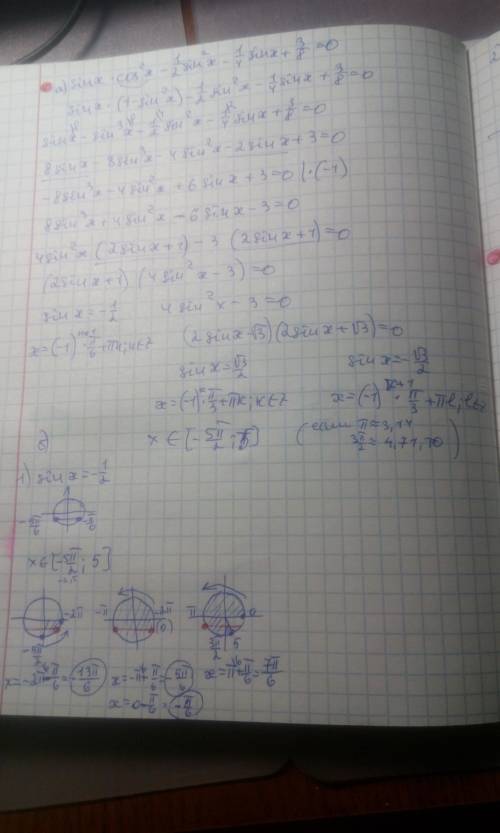 а) sin x · cos²x - 1/2 sin²x - 1/4 sin x + 3/8 = 0
sin x · (1 - sin²x) - 1/2 sin²x - 1/4 sin x + 3/8 = 0
sin x - sin³x - 1/2 sin²x - 1/4 sin x + 3/8 = 0
8 sin x - 8 sin³x - 4 sin²x - 2 sin x + 3 = 0
-8 sin³x - 4 sin²x + 6 sin x + 3 = 0 | · (-1)
8 sin³x + 4 sin²x - 6 sin x - 3 = 0
4 sin²x (2 sin x + 1) - 3 (2 sin x + 1) = 0
(2 sin x + 1) (4 sin²x - 3) = 0
sin x = -1/2 4 sin²x - 3 = 0
(2 sin x - √3)(2 sin x + √3) = 0
x = (-1)ⁿ⁺¹ · π/6 + πn; n∈Z
sin x = √3/2 sin x = -√3/2
x = (-1)ᵏ · π/3 + πk; k∈Z
б) x ∈ [-5π/2; 5]
1) sin x = -1/2
-5π/6 -π/6
x ∈ [-5π/2; 5]
-2π -π π 0
-5π/2 3π/2 5
x = -2π - π/6 = -13π/6 x = -π + π/6 = -5π/6 x = π + π/6 = 7π/6
x = 0 - π/6 = -π/6